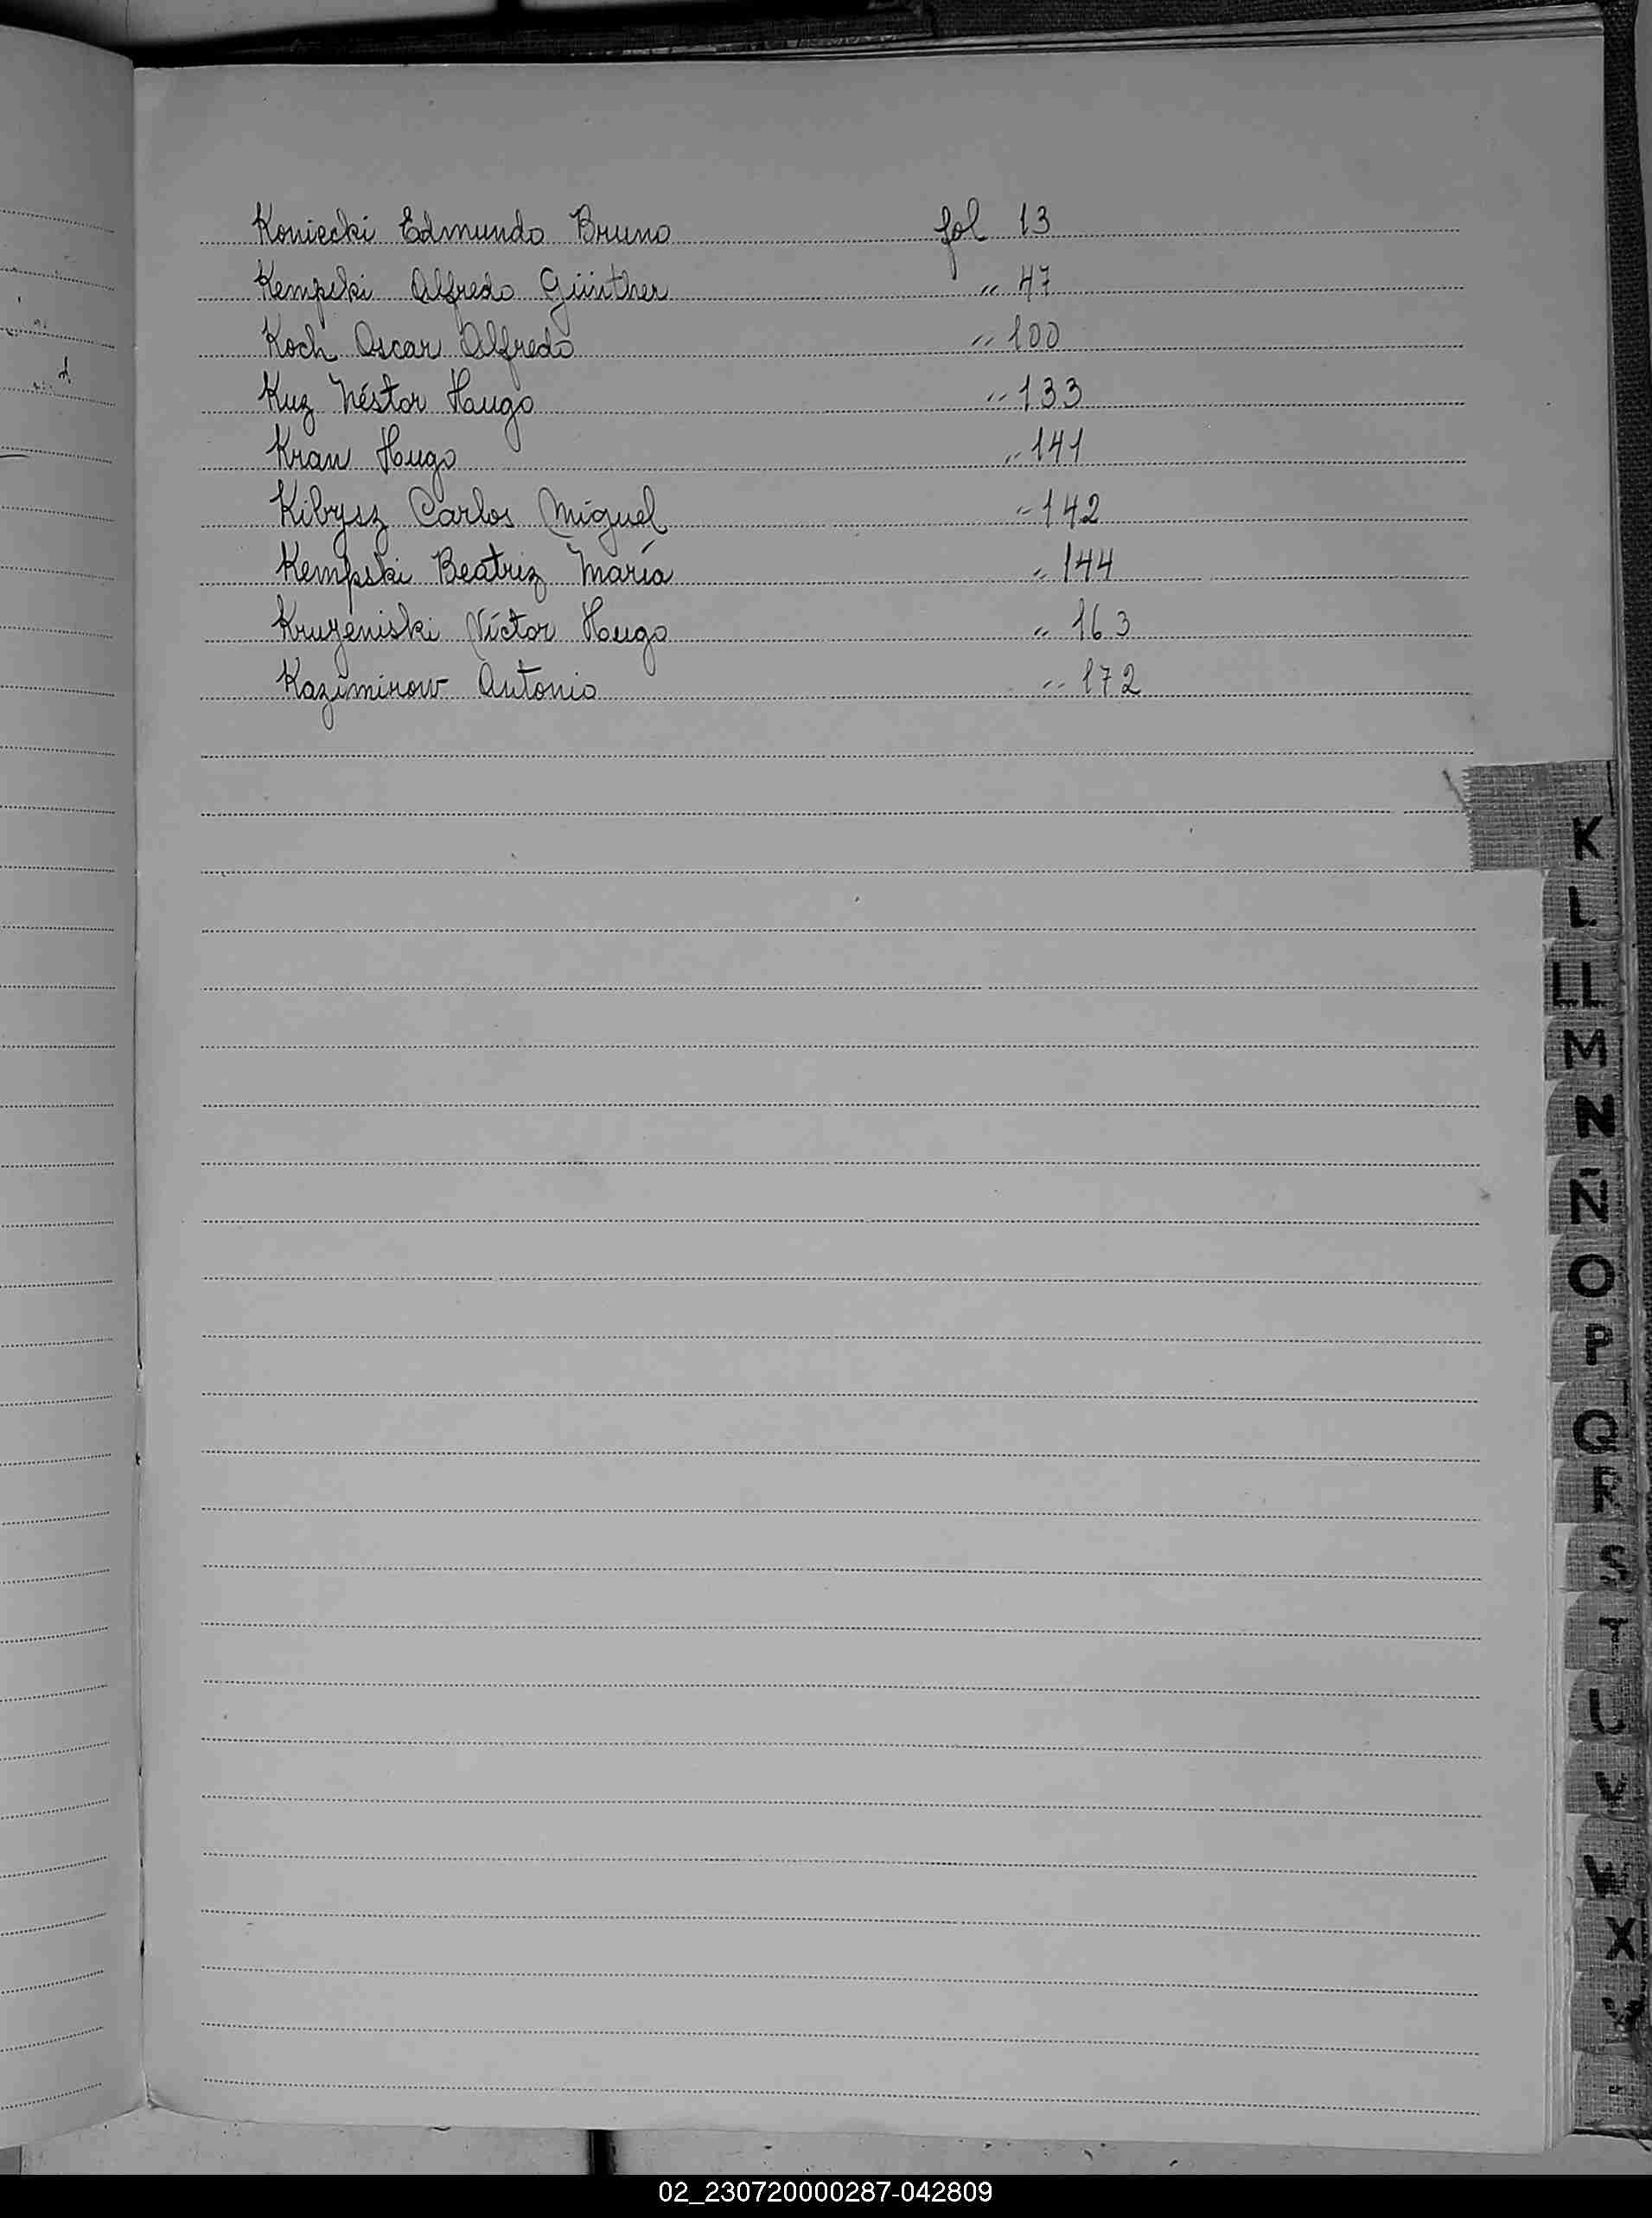 Koniecki Edmundo Bruno fol 13
Kempski Alfredo Günther " 47
Koch Oscar Alfredo " 100
Kuz Néstor Hugo " 133
Kran Hugo " 141
Kibysz Carlos Miguel " 142
Kempski Beatriz María " 144
Kruzeniski Víctor Hugo " 163
Kazimirow Antonio " 172
K
L
LL
M
N
Ñ
O
P
Q
R
S
T
U
V
X
02_230720000287-042809